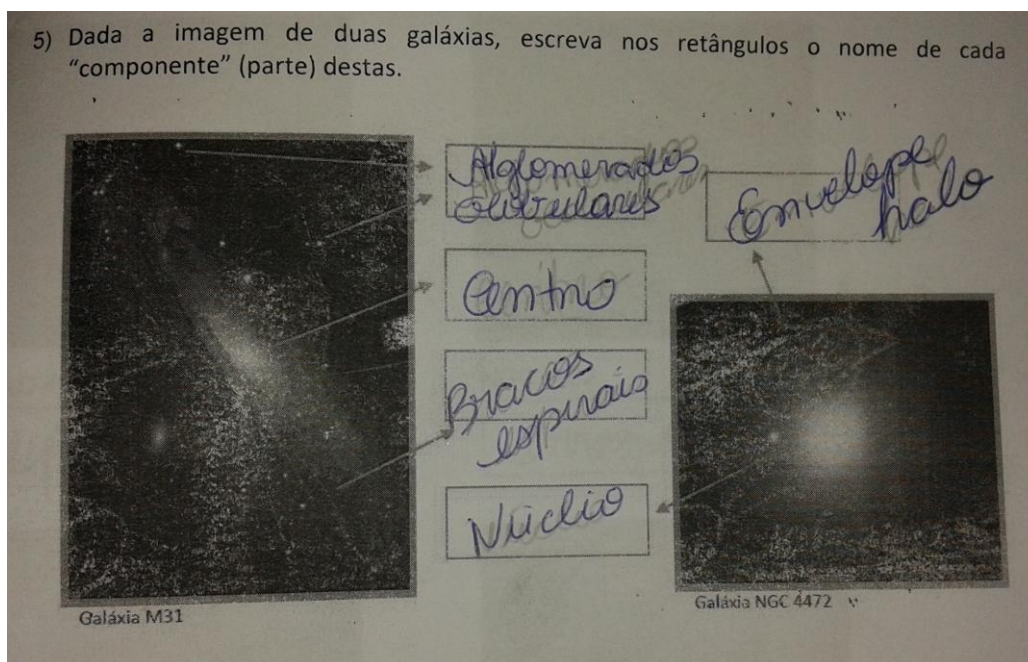 5) Dada a imagem de duas galáxias, escreva nos retângulos o nome de cada
“componente” (parte) destas.
Alglomerados
Globulares
Envelope
halo
Centro
Bracos
espirais
Núclio
Galáxia M31
Galáxia NGC 4472